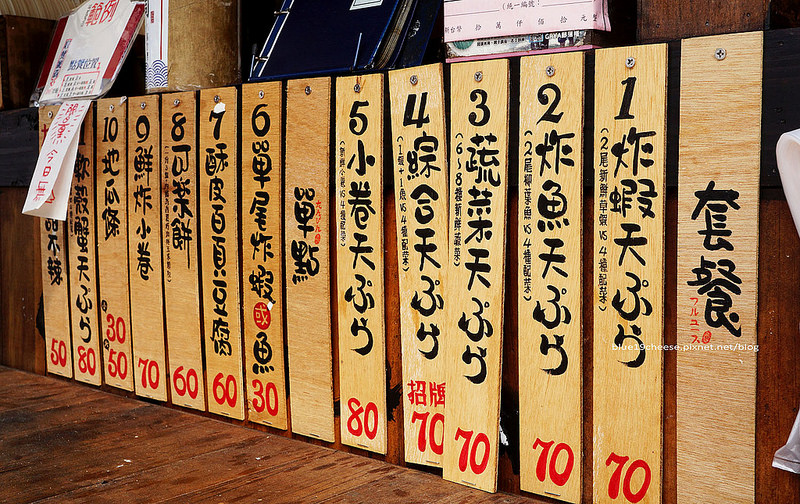 範例
(統一編號)
拾 萬 仟 佰 拾 元整
套餐
フルコース
1炸蝦天ぷら
(2尾新鮮草蝦VS4種配菜)
70
2炸魚天ぷら
(2尾柳葉魚VS4種配菜)
70
3蔬菜天ぷら
(6~8種新鮮蔬菜)
70
4綜合天ぷら
(1蝦+1魚VS4種配菜)
招牌
70
5小卷天ぷら
(新鮮小卷VS4種配菜)
80
單點
6單尾炸蝦或魚
30
7酥皮百頁豆腐
60
8可樂餅
60
9鮮炸小卷
70
10地瓜條
小30
大50
軟殼蟹天ぷら
80
不辣
50
今日無
blue19cheese.pixnet.net/blog